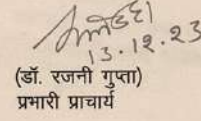 13.12.23
(डॉ. रजनी गुप्ता)
प्रभारी प्राचार्य